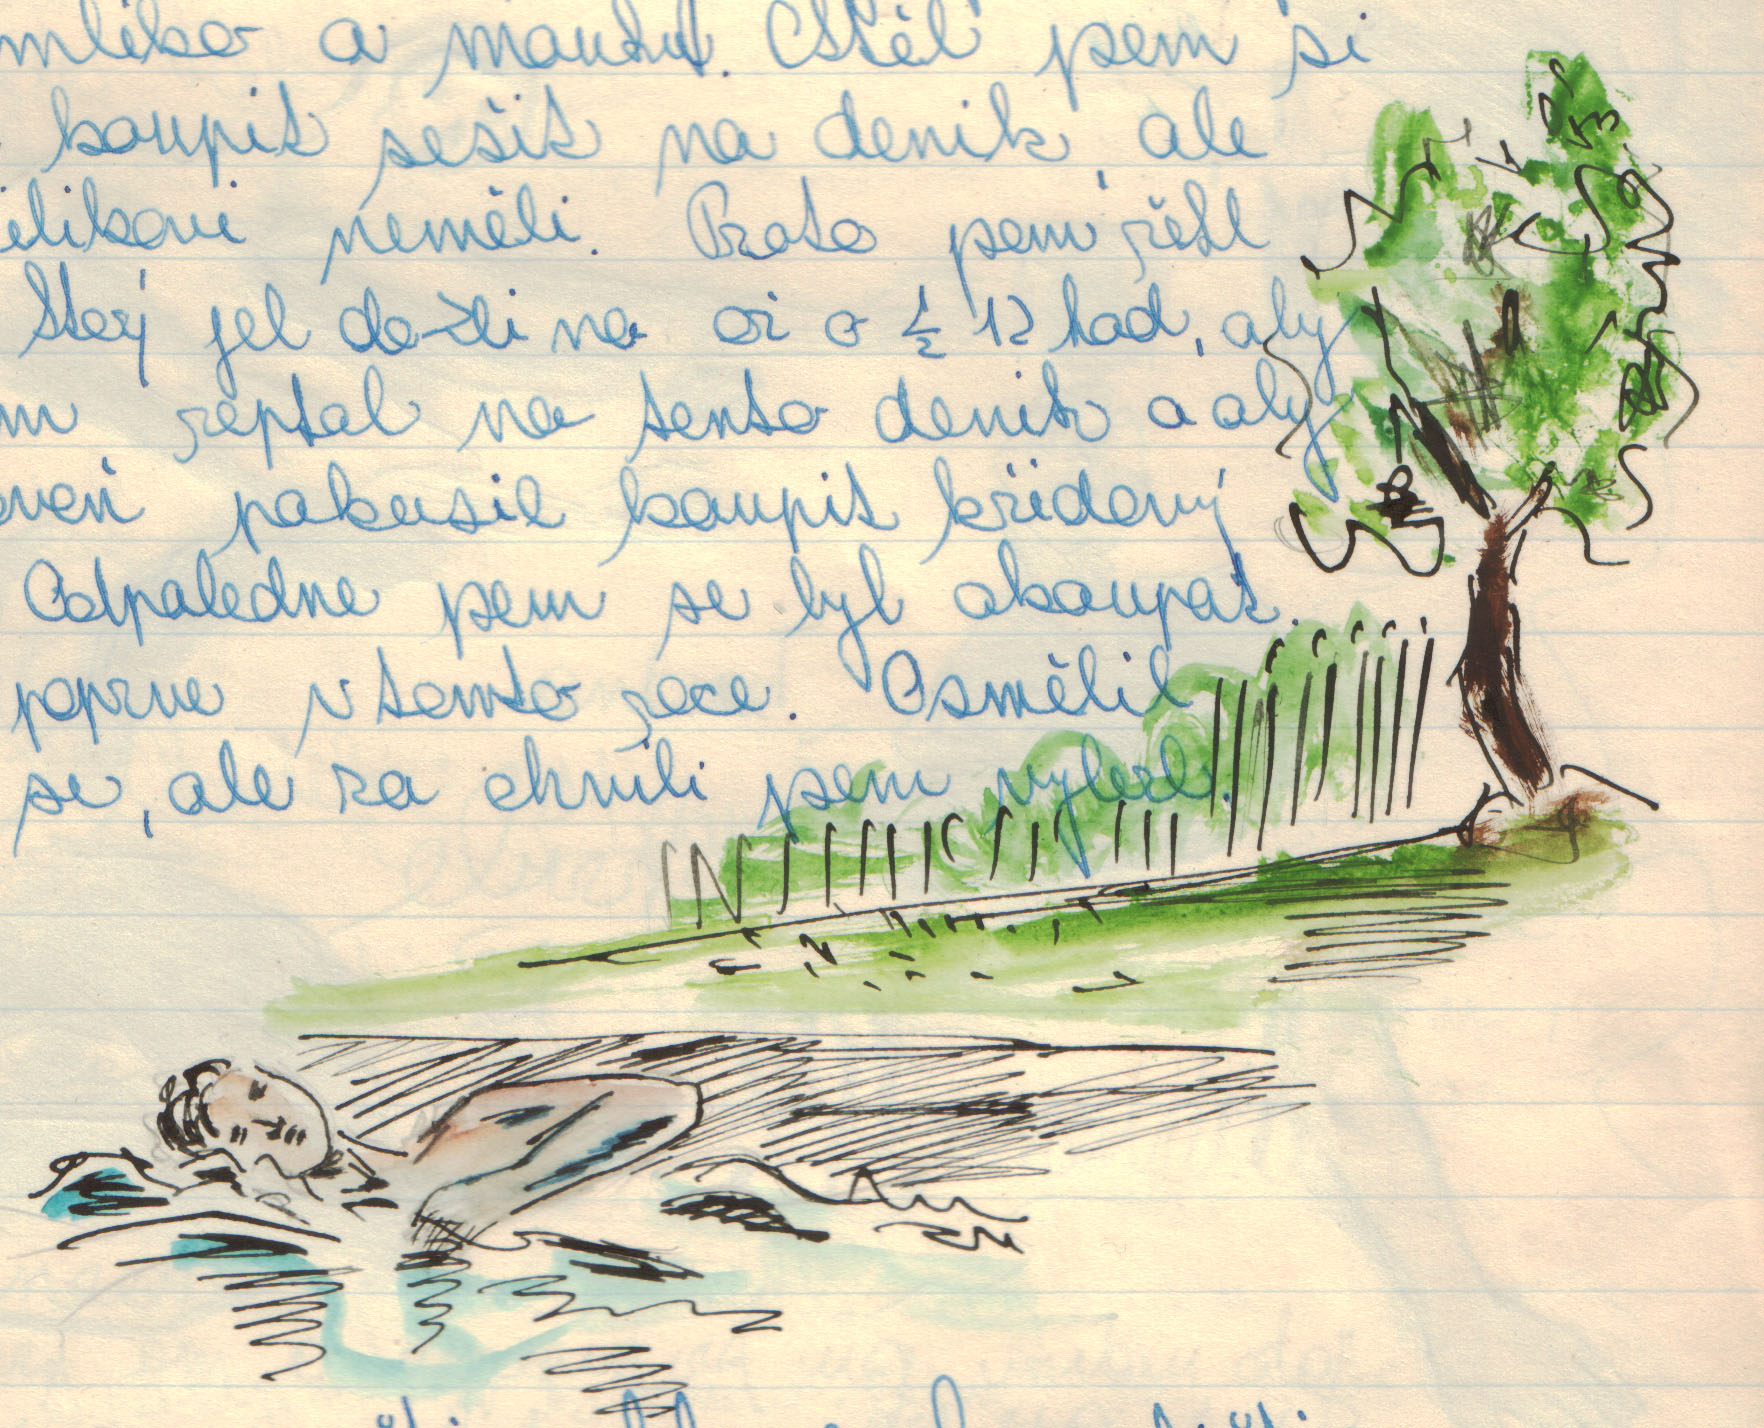 mléko a mouku. Chtěl jsem si
koupit sešit na deník, ale
neměli. Proto jsem řekl
který jel do
o ½ 12 hod, aby
zeptal na tento deník a aby
pokusil koupit křídový
Odpoledne jsem se byl okoupat.
poprvé v tomto roce. Osmělil
se, ale za chvíli jsem vylezl.